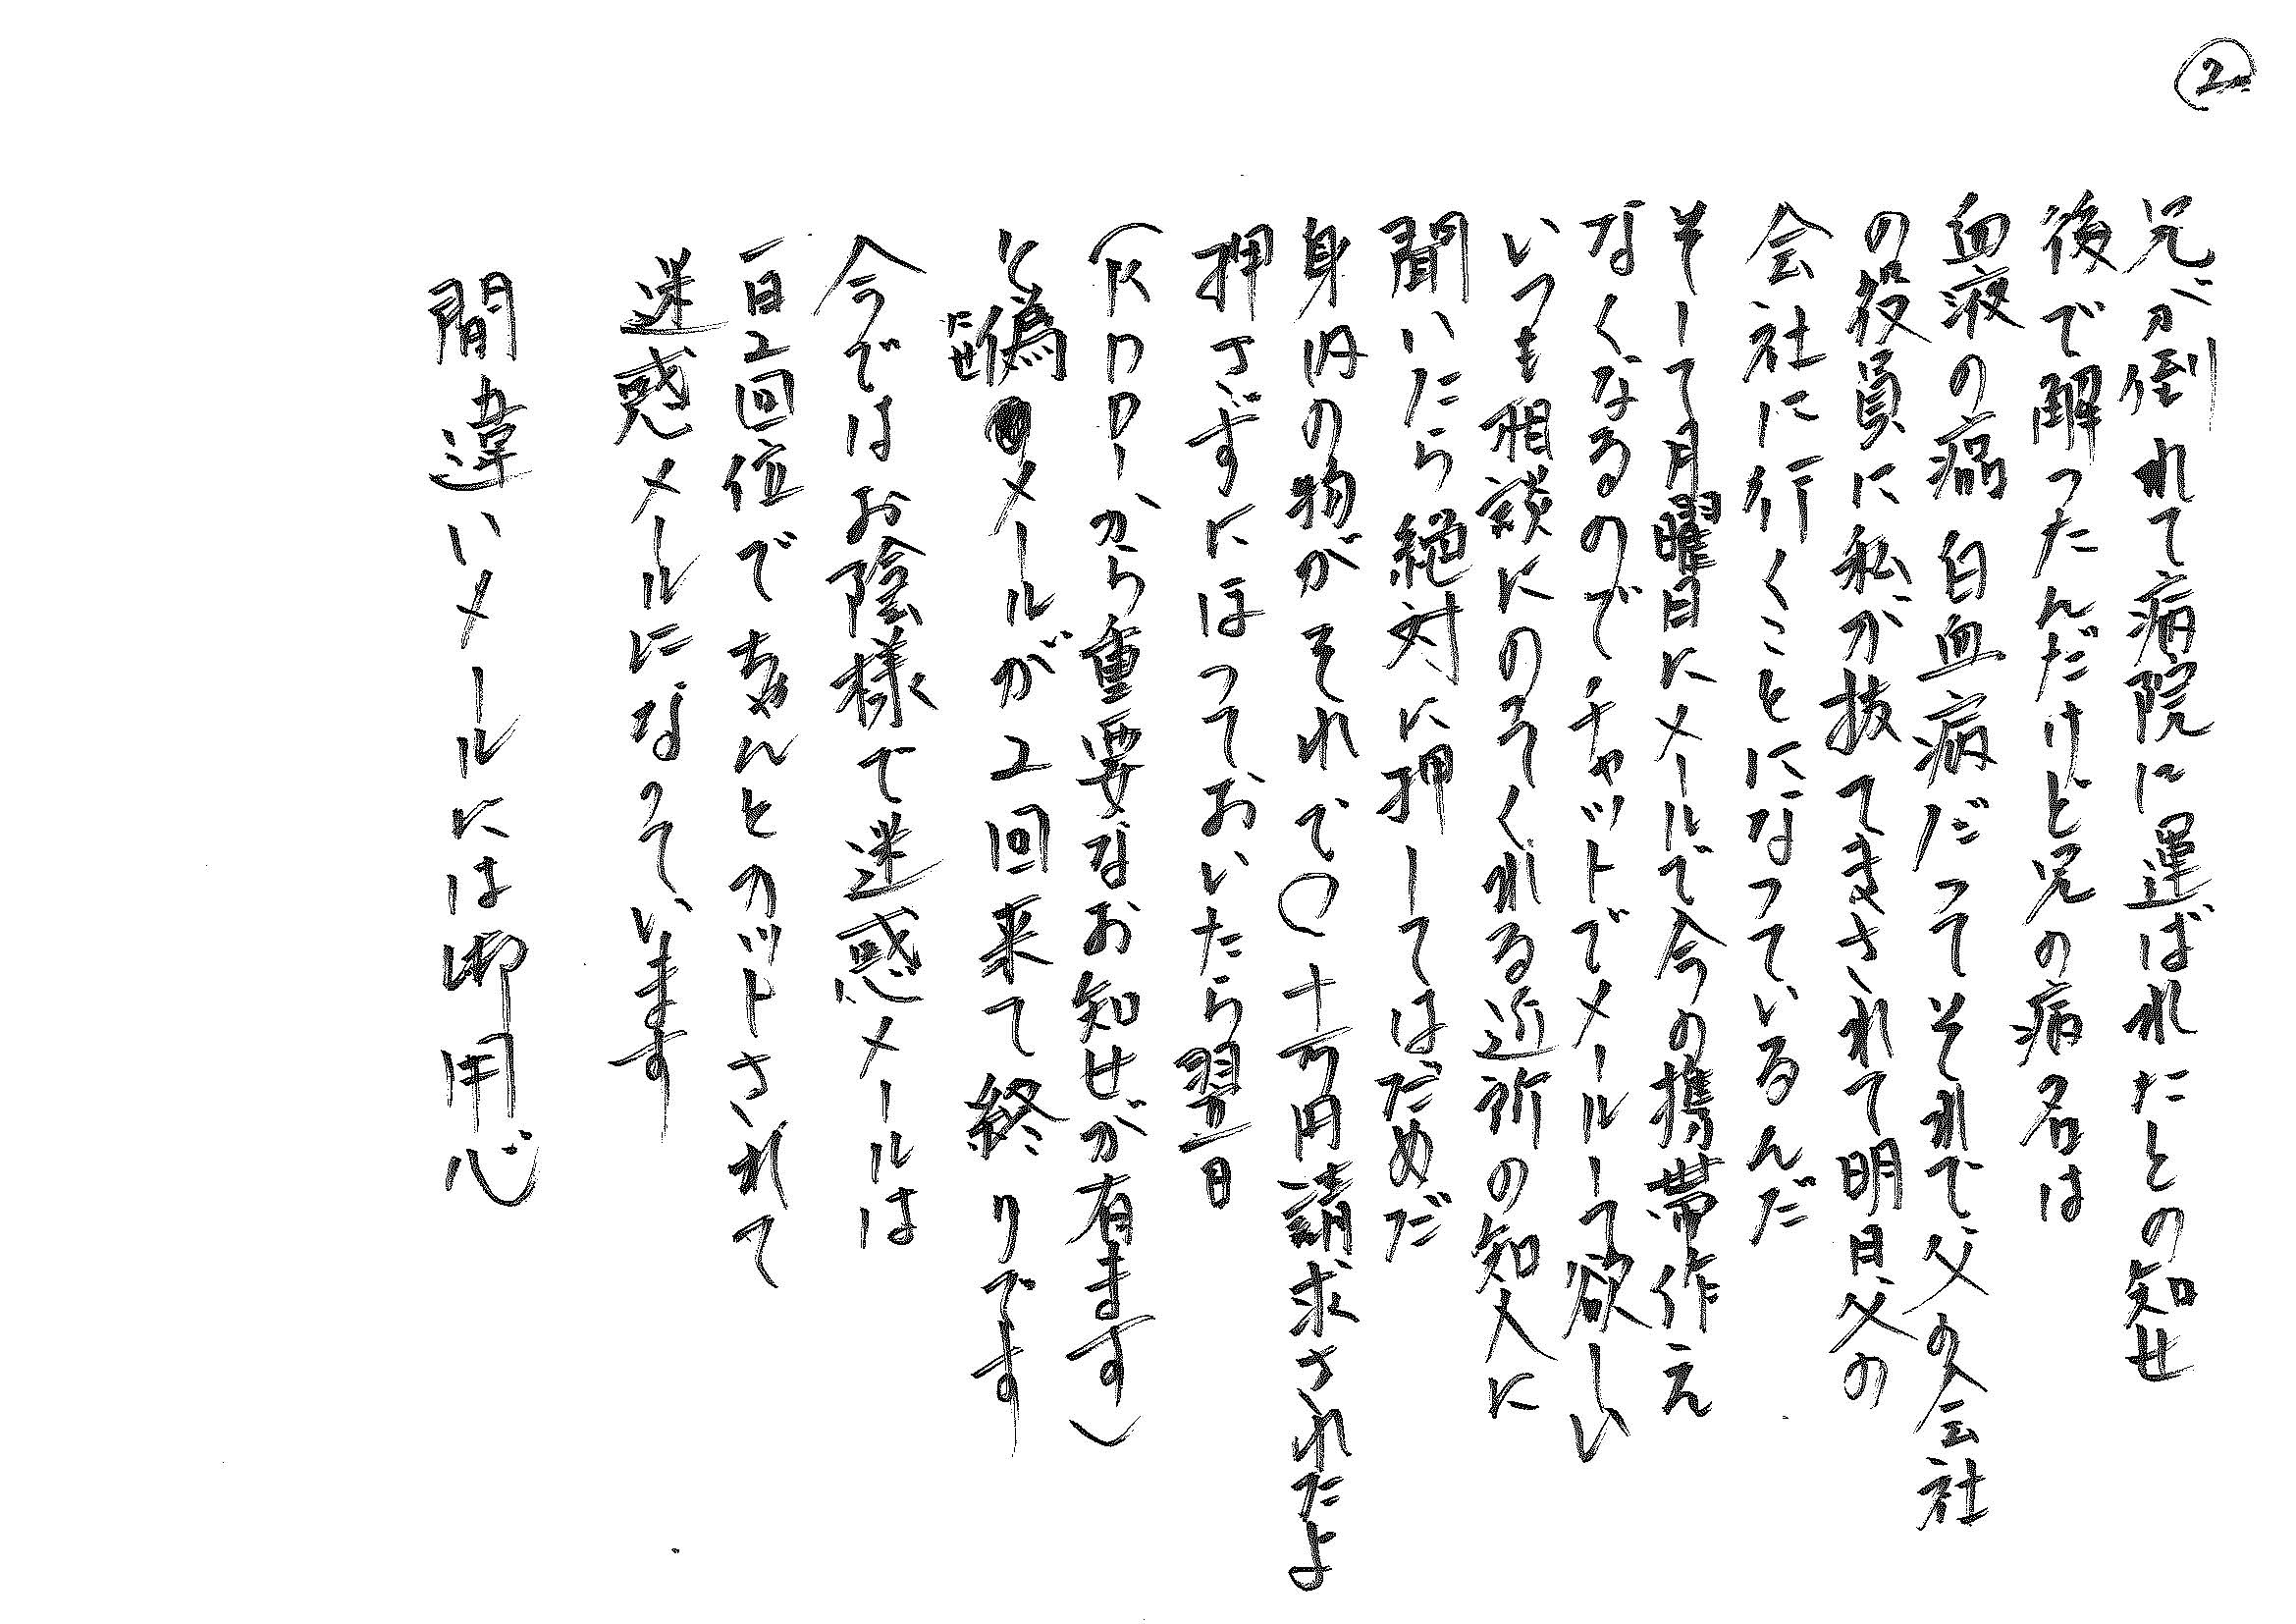 ②
兄が倒れて病院に運ばれたとの知せ
後で解ったんだけど兄の病名は
血液の病白血病だってそれで父の会社
の役員に私が抜てきされて明日父の
会社に行くことになっているんだ
そして月曜日にメールで今の携帯作え
なくなるのでチャットでメールして欲しい
いつも相談にのってくれる近所の知人に
聞いたら絶対に押してはだめだ
身内の物がそれで〇十万円請求されたよ
押さずにほっておいたら翌日
(KDDIから重要なお知せが有ます)
と偽メールが2回来て終りです
にせ
今ではお陰様で迷惑メールは
一日2回位できちんとカットされて
迷惑メールになっています
間違いメールには御用心